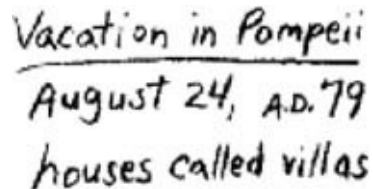 Vacation in Pompeii
August 24, A.D. 79
houses called villas